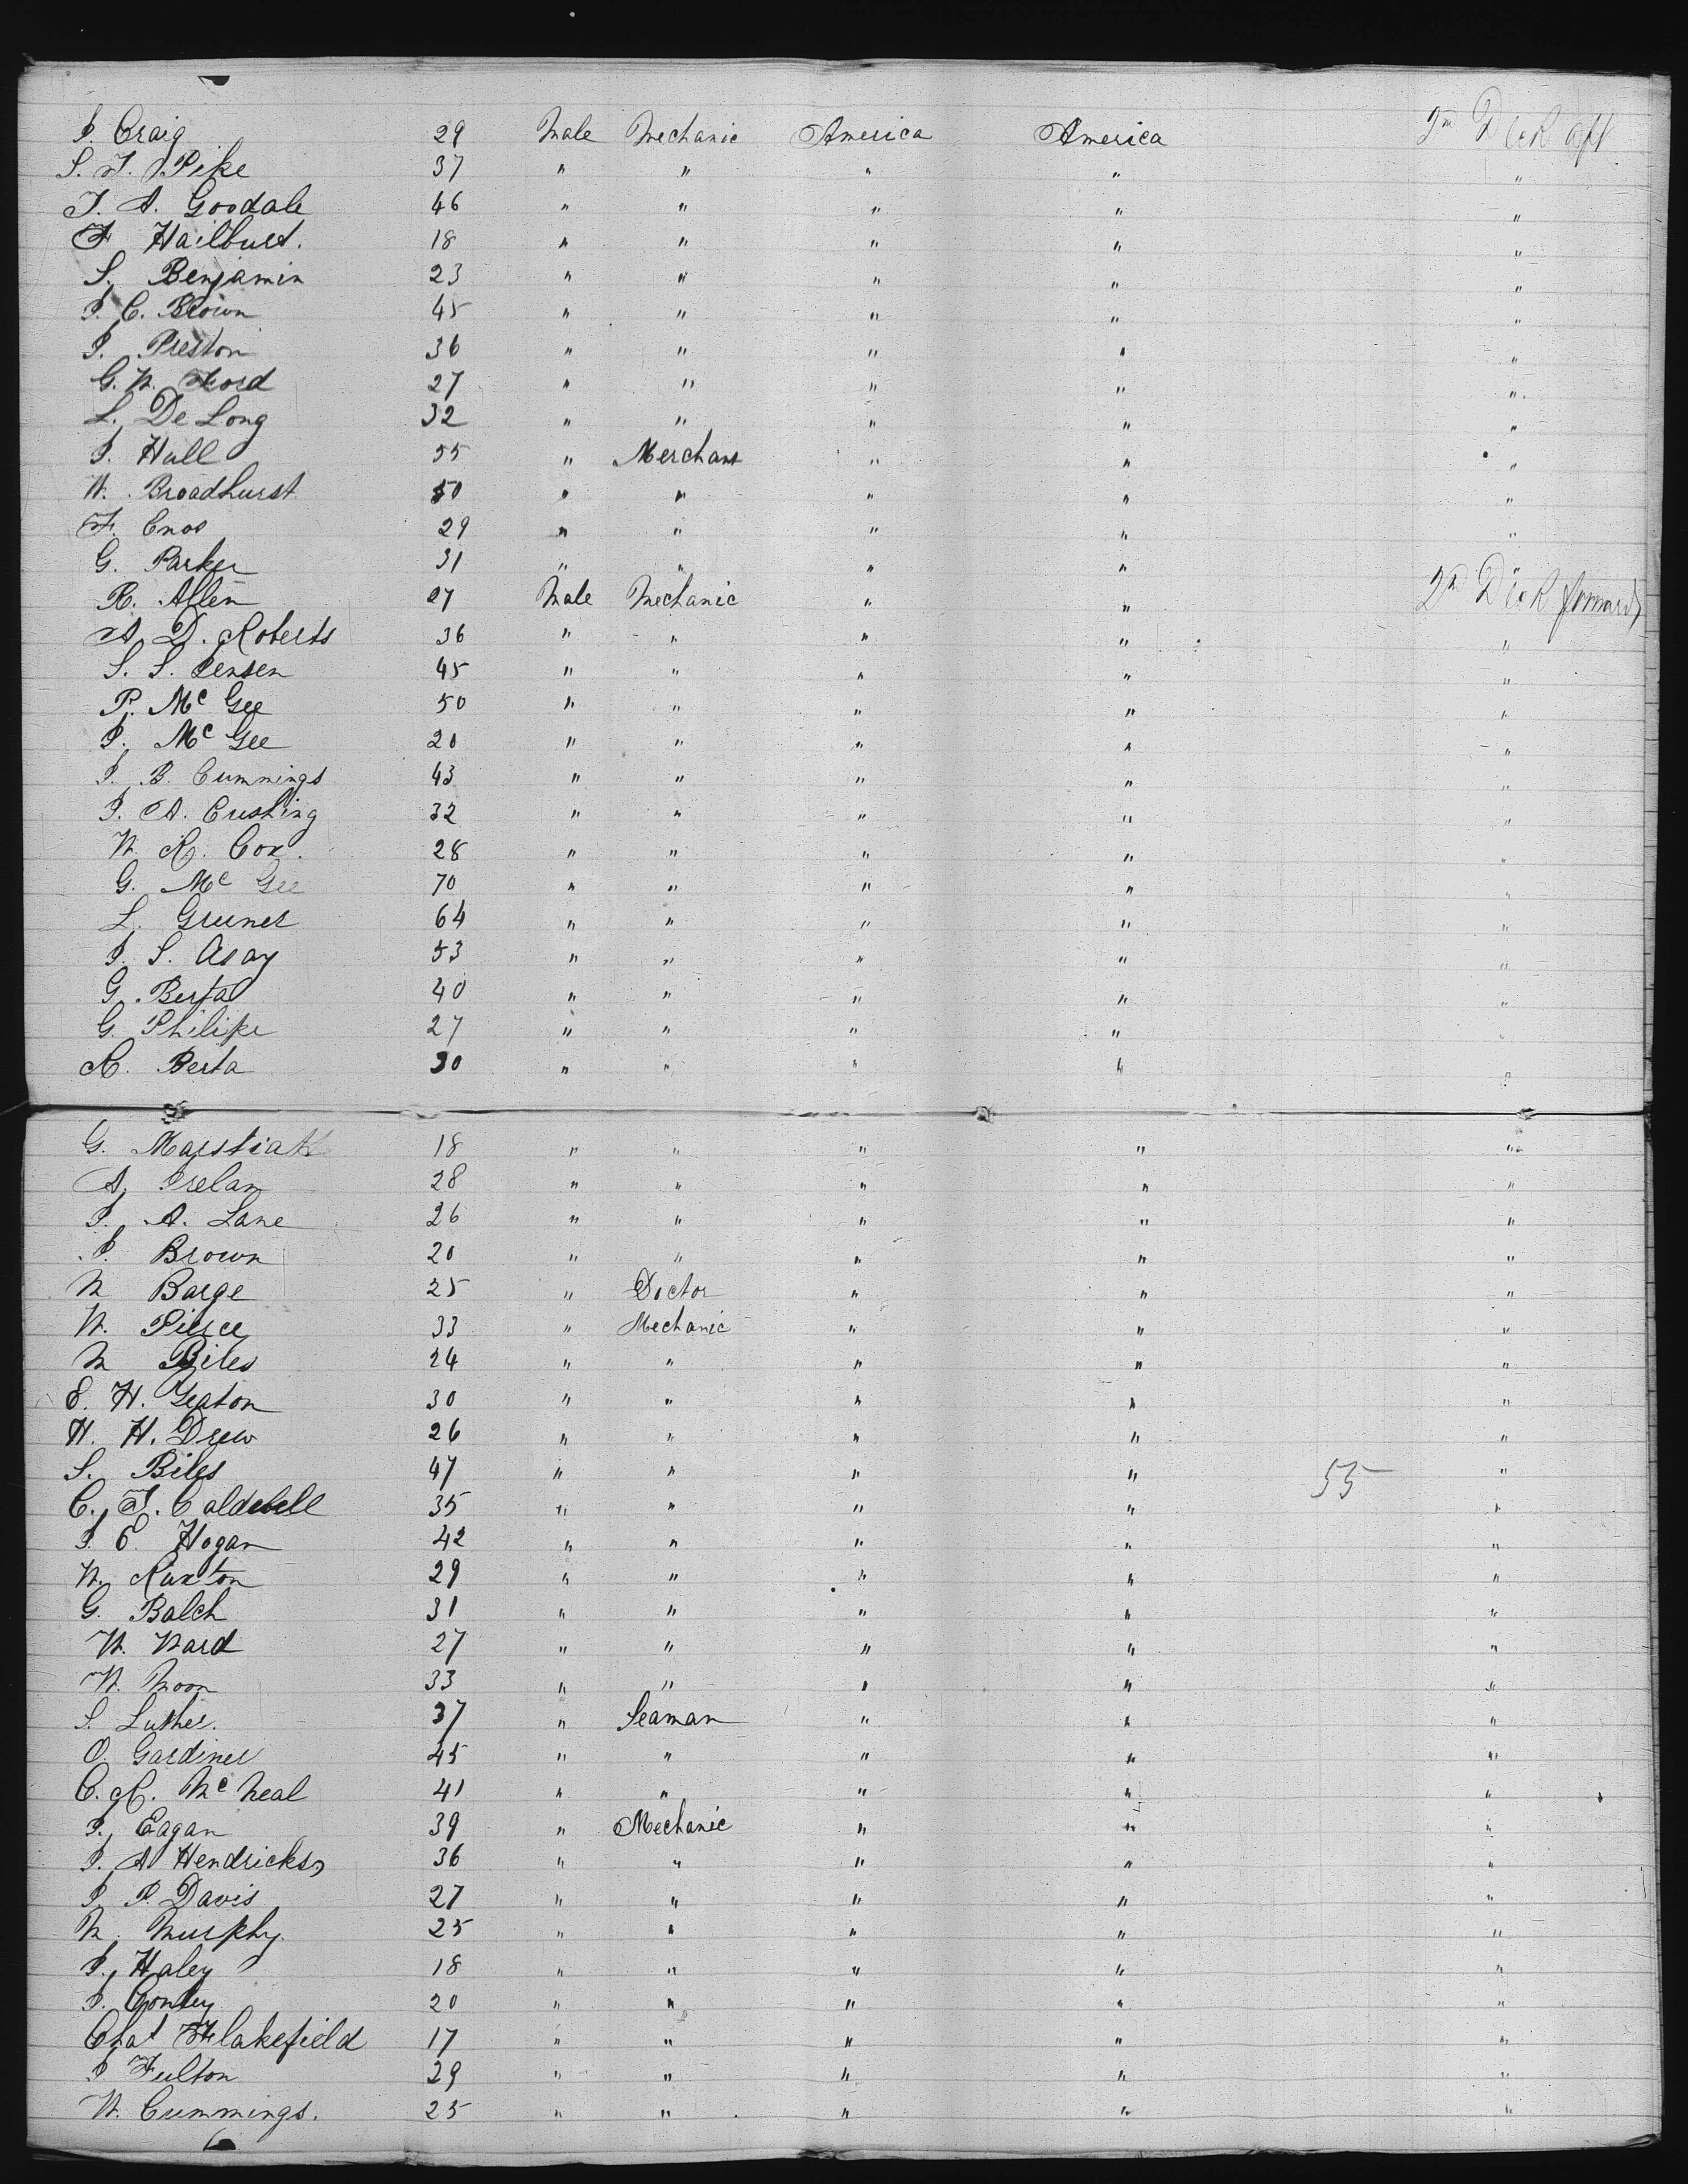 J. Craig 29 Male Mechanic America America 2nd Deck aft
S. F. Pike 37 " " " " "
J. A. Goodale 46 " " " " "
F. Hailburt. 18 " " " " "
S. Benjamin 23 " " " " "
J. C. Brown 45 " " " " "
J. Preston 36 " " " " "
G. W. Ford 27 " " " " "
L. De Long 32 " " " " "
J. Hull 55 " Merchant " " "
W. Broadhurst 50 " " " " "
F. Enos 29 " " " " "
G. Parker 31 " " " " "
R. Allen 27 Male Mechanic " " 2nd Deck forward
A. D. Roberts 36 " " " " "
S. S. Jensen 45 " " " " "
P. Mc Gee 50 " " " " "
J. Mc Gee 20 " " " " "
J. B. Cummings 43 " " " " "
J. A. Cushing 32 " " " " "
W. R. Cox. 28 " " " " "
G. Mc Gee 70 " " " " "
L. Gruner 64 " " " " "
J. S. Asay 53 " " " " "
G. Berta 40 " " " " "
G. Philipe 27 " " " " "
R. Berta 30 " " " " "
G. 18 " " " " "
A. Irelan 28 " " " " "
J. A. Lane 26 " " " " "
J. Brown 20 " " " " "
M Barge 25 " Doctor " " "
W. Pierce 33 " Mechanic " " "
M Biles 24 " " " " "
E. H. Yeaton 30 " " " " "
H. H. Drew 26 " " " " "
S. Biles 47 " " " " 55 "
C. F. Caldwell 35 " " " " "
J. E. Hogan 42 " " " " "
W. Ruxton 29 " " " " "
G. Balch 31 " " " " "
W. Ward 27 " " " " "
W. Moon 33 " " " " "
S. Luther. 37 " Seaman " " "
O. Gardiner 45 " " " " "
C. H. Mc Neal 41 " " " " "
J. Eagan 39 " Mechanic " " "
J. A Hendricks 36 " " " " "
J. P. Davis 27 " " " " "
M. Murphy. 25 " " " " "
J. Haley 18 " " " " "
J. Conley 20 " " " " "
Chas Flakefield 17 " " " " "
J Fulton 29 " " " " "
W. Cummings. 25 " " " " "